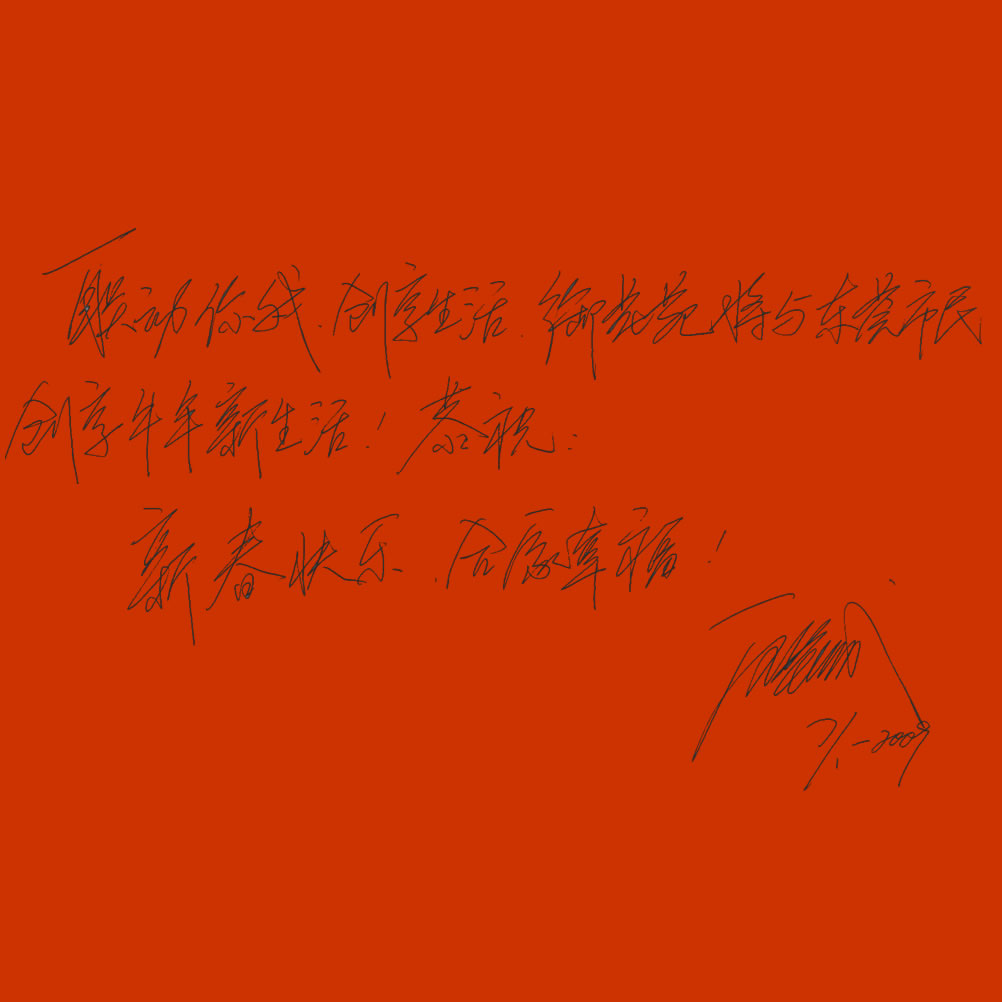 联动你我.创享生活.御景苑将与东莞市民
创享牛年新生活!恭祝:
新春快乐.合家幸福!
7/1-2009